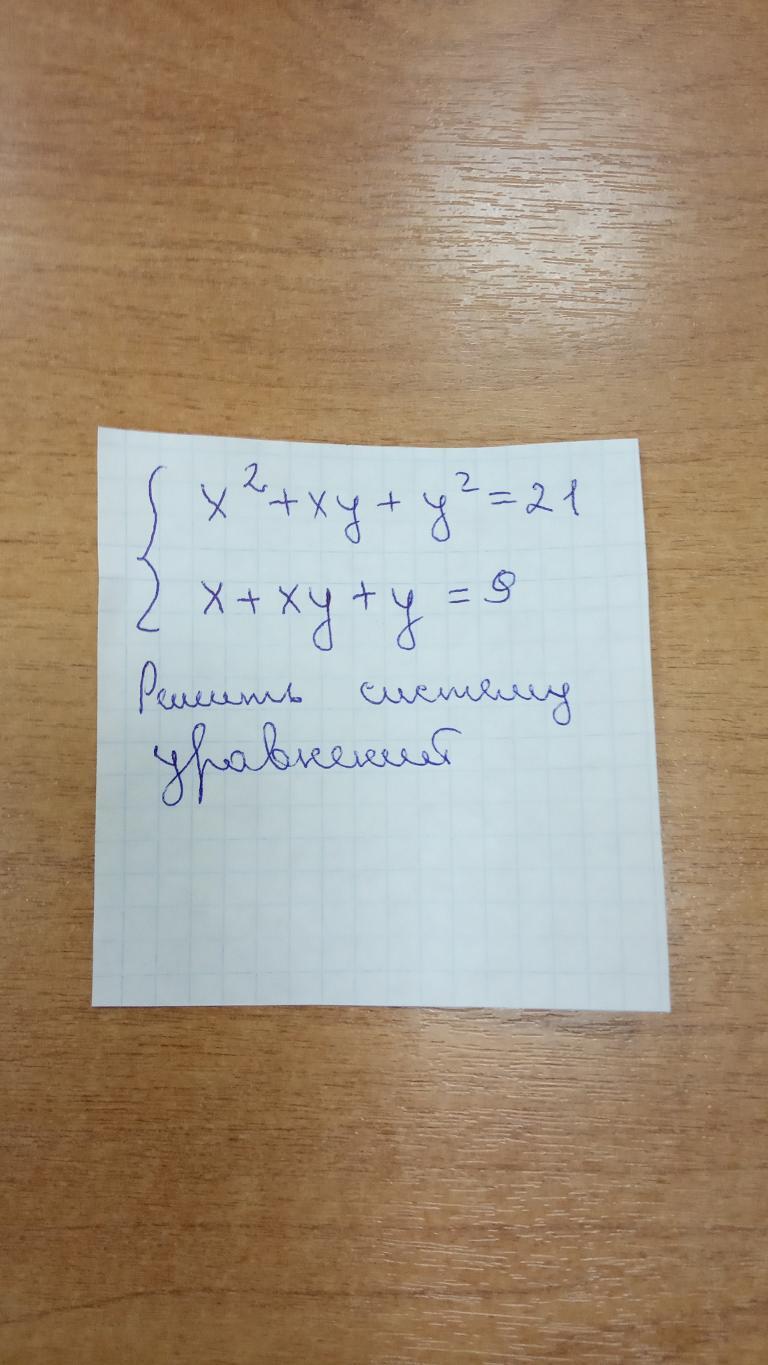 x² + xy + y² = 21
x + xy + y = 9
Решить систему
уравнений